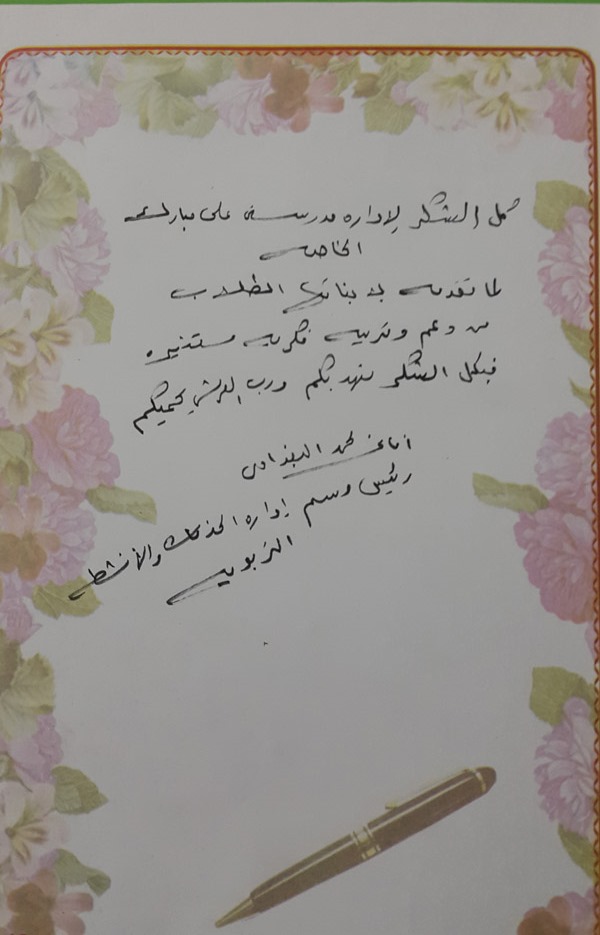 كل الشكر لإداره مدرسة على مبارك
الخاصه
لما تقدمه لابنائها الطلاب
من دعم وتربيه فكريه مستنيره
فبكل الشكر نهديكم ورب العرش يحميكم
محمد البغدادى
رئيس وسم إداره الخدمات والأنشطه
التربويه